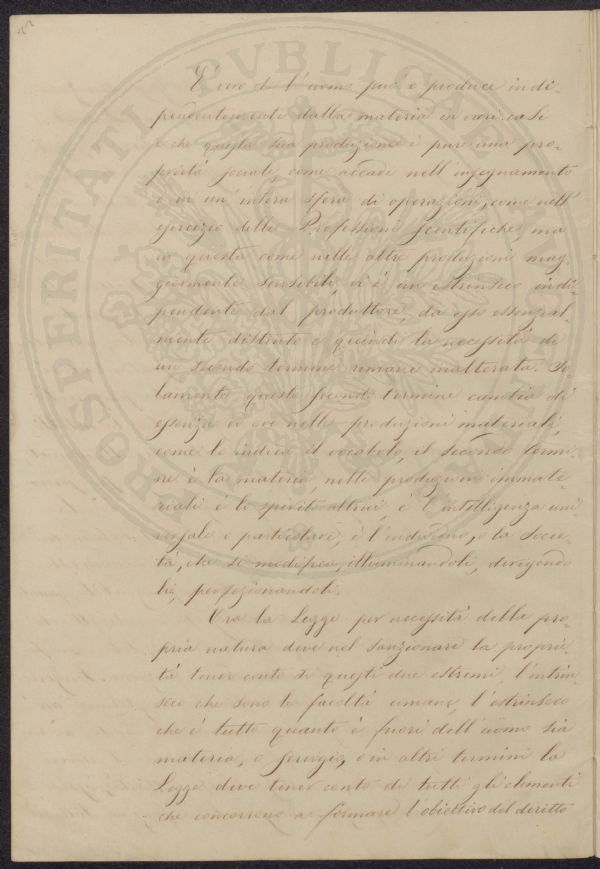 22
È vero che l'uomo può e produce indi-
pendentemente dalla materia in vari casi
e che questa sua produzione è pure una pro-
prietà sociale, come accade nell'insegnamento
e in un'intera sfera di operazioni, come nell'
esercizio delle Professioni scientifiche, ma
in queste come nelle altre produzioni mag-
giormente sensibili vi è un estrinseco indi-
pendente dal produttore, da esso essenzial-
mente distinto e quindi la necessità di
un secondo termine rimane inalterata. So-
lamente questo secondo termine cambia di
essenza ed ove nelle produzioni materiali,
come lo indica il vocabolo, il secondo termi-
ne è la materia nelle produzioni immate-
riali è lo spirito altrui, è l'intelligenza uni-
versale o particolare, è l'individuo, o la Socie-
tà, che si modifica, illuminandoli, dirigendo
li, perfezionandoli.
Ora la Legge per necessità della pro-
pria natura deve nel sanzionare la proprie-
tà tener conto di questi due estremi, l'intrin-
seco che sono le facoltà umane, l'estrinseco
che è tutto quanto è fuori dell'uomo sia
materia, o servigi, o in altri termini la
Legge deve tener conto di tutti gli elementi
che concorrono a formare l'obiettivo del diritto
PROSPERITATI PVBLICAE